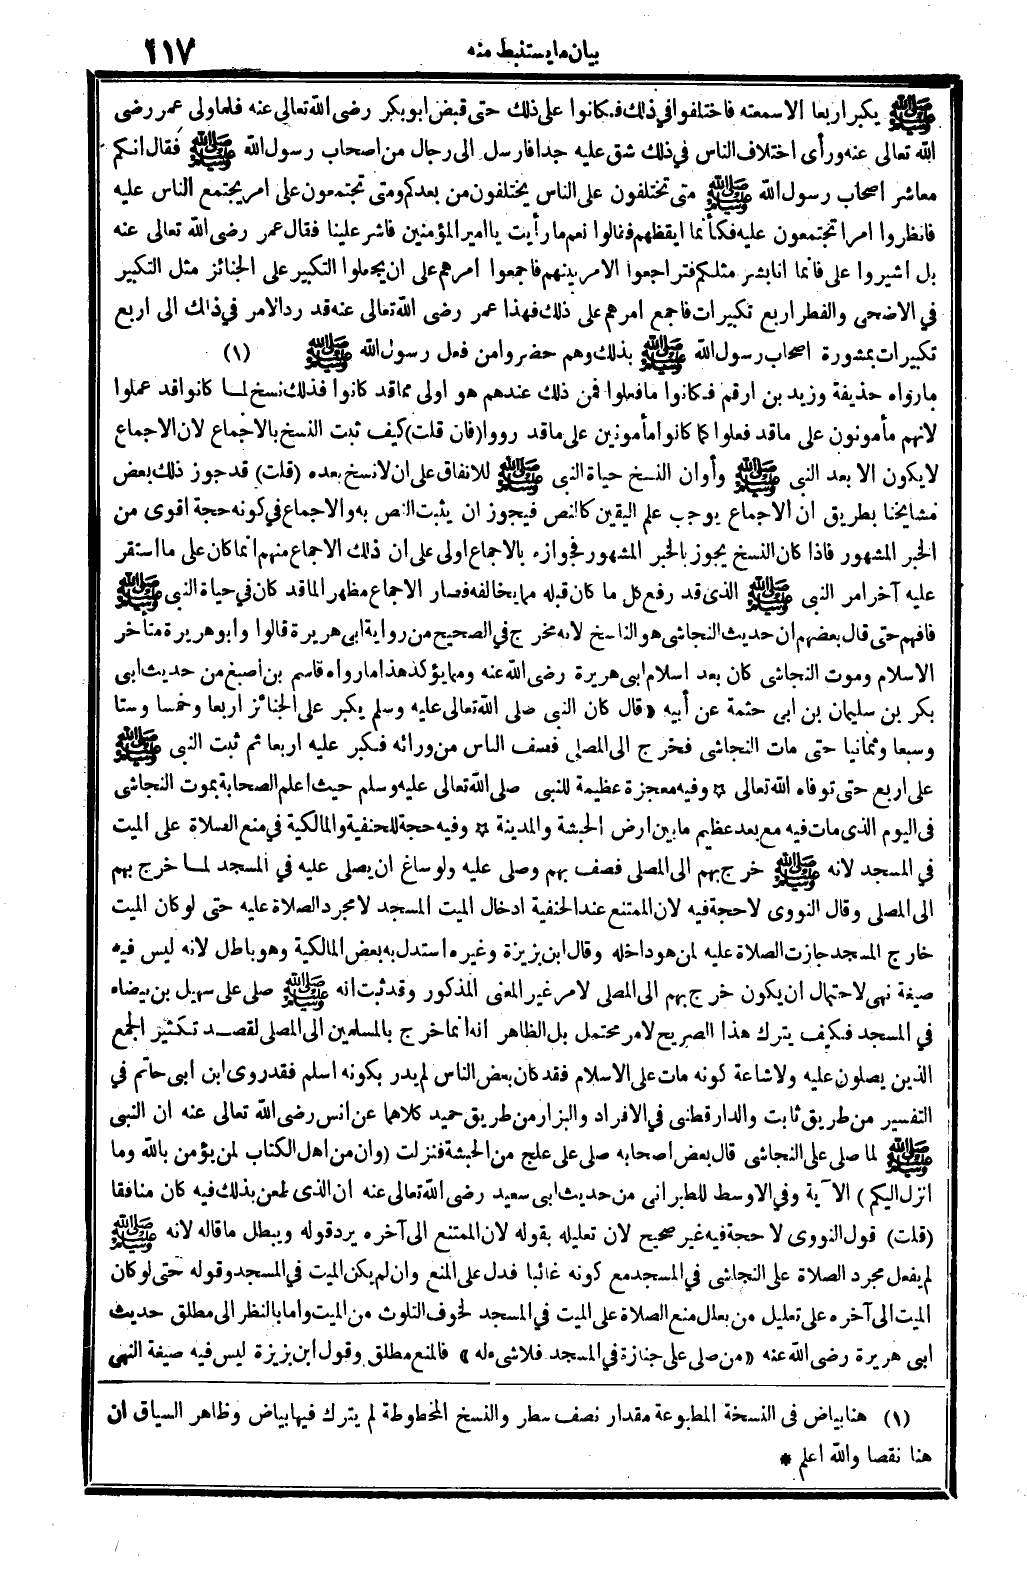 بيان ما يستنبط منه ٤١٧
ﷺ يكبر اربعا الا سمعته فاختلفوا في ذلك فكانوا على ذلك حتى قبض ابو بكر رضى الله تعالى عنه فلما ولى عمر رضى
الله تعالى عنه ورأى اختلاف الناس في ذلك شق عليه جدا فارسل الى رجال من اصحاب رسول الله ﷺ فقال انكم
معاشر اصحاب رسول الله ﷺ متى تختلفون على الناس يختلفون من بعدكم ومتى تجتمعون على امر يجتمع الناس عليه
فانظروا امرا تجتمعون عليه فكأنما ايقظهم فقالوا نعم ما رأيت يا امير المؤمنين فاشر علينا فقال عمر رضى الله تعالى عنه
بل اشيروا على فانما انا بشر مثلكم فتراجعوا الامر بينهم فاجمعوا امرهم على ان يجعلوا التكبير على الجنائز مثل التكبير
في الاضحى والفطر اربع تكبيرات فاجمع امرهم على ذلك فهذا عمر رضى الله تعالى عنه قد رد الامر في ذلك الى اربع
تكبيرات بمشورة اصحاب رسول الله ﷺ بذلك وهم حضروا من فعل رسول الله ﷺ (١)
ما رواه حذيفة وزيد بن ارقم فكانوا ما فعلوا فمن ذلك عندهم هو اولى مما قد كانوا فذلك نسخ لما كانوا قد عملوا
لانهم مأمونون على ما قد فعلوا كما كانوا مأمونين على ما قد رووا (فان قلت) كيف ثبت النسخ بالاجماع لان الاجماع
لا يكون الا بعد النبى ﷺ وأوان النسخ حياة النبى ﷺ للاتفاق على ان لا نسخ بعده (قلت) قد جوز ذلك بعض
مشايخنا بطريق ان الاجماع يوجب علم اليقين كالنص فيجوز ان يثبت النص به والاجماع في كونه حجة اقوى من
الخبر المشهور فاذا كان النسخ يجوز بالخبر المشهور فجوازه بالاجماع اولى على ان ذلك الاجماع منهم انما كان على ما استقر
عليه آخر امر النبى ﷺ الذى قد رفع كل ما كان قبله مما يخالفه فصار الاجماع مظهرا لما قد كان في حياة النبى ﷺ
فافهم حتى قال بعضهم ان حديث النجاشى هو الناسخ لانه مخرج في الصحيح من رواية ابى هريرة قالوا وابو هريرة متأخر
الاسلام وموت النجاشى كان بعد اسلام ابى هريرة رضى الله عنه ومما يؤكد هذا ما رواه قاسم بن اصبغ من حديث ابى
بكر بن سليمان بن ابى حثمة عن أبيه «قال كان النبى صلى الله تعالى عليه وسلم يكبر على الجنائز اربعا وخمسا وستا
وسبعا وثمانيا حتى مات النجاشى فخرج الى المصلى فصف الناس من ورائه فكبر عليه اربعا ثم ثبت النبى ﷺ
على اربع حتى توفاه الله تعالى ✡ وفيه معجزة عظيمة للنبى صلى الله تعالى عليه وسلم حيث اعلم الصحابة بموت النجاشى
فى اليوم الذى مات فيه مع بعد عظيم ما بين ارض الحبشة والمدينة ✡ وفيه حجة للحنفية والمالكية في منع الصلاة على الميت
في المسجد لانه ﷺ خرج بهم الى المصلى فصف بهم وصلى عليه ولو ساغ ان يصلى عليه في المسجد لما خرج بهم
الى المصلى وقال النووى لا حجة فيه لان الممتنع عند الحنفية ادخال الميت المسجد لا مجرد الصلاة عليه حتى لو كان الميت
خارج المسجد جازت الصلاة عليه لمن هو داخله وقال ابن بزيزة وغيره استدل به بعض المالكية وهو باطل لانه ليس فيه
صيغة نهى لاحتمال ان يكون خرج بهم الى المصلى لامر غير المعنى المذكور وقد ثبت انه ﷺ صلى على سهيل بن بيضاء
في المسجد فكيف يترك هذا الصريح لامر محتمل بل الظاهر انه انما خرج بالمسلمين الى المصلى لقصد تكثير الجمع
الذين يصلون عليه ولاشاعة كونه مات على الاسلام فقد كان بعض الناس لم يدر بكونه اسلم فقد روى ابن ابى حاتم في
التفسير من طريق ثابت والدارقطنى في الافراد والبزار من طريق حميد كلاهما عن انس رضى الله تعالى عنه ان النبى
ﷺ لما صلى على النجاشى قال بعض اصحابه صلى على علج من الحبشة فنزلت (وان من اهل الكتاب لمن يؤمن بالله وما
انزل اليكم) الآية وفي الاوسط للطبرانى من حديث ابى سعيد رضى الله تعالى عنه ان الذى طعن بذلك فيه كان منافقا
(قلت) قول النووى لا حجة فيه غير صحيح لان تعليله بقوله لان الممتنع الى آخره يرد قوله ويبطل ما قاله لانه ﷺ
لم يفعل مجرد الصلاة على النجاشى في المسجد مع كونه غائبا فدل على المنع وان لم يكن الميت في المسجد وقوله حتى لو كان
الميت الى آخره على تعليل من يعلل منع الصلاة على الميت في المسجد لخوف التلوث من الميت واما بالنظر الى مطلق حديث
ابى هريرة رضى الله عنه «من صلى على جنازة في المسجد فلا شىء له» فالمنع مطلق وقول ابن بزيزة ليس فيه صيغة النهى
(١) هنا بياض فى النسخة المطبوعة مقدار نصف سطر والنسخ المخطوطة لم يترك فيها بياض وظاهر السياق ان
هنا نقصا والله اعلم *